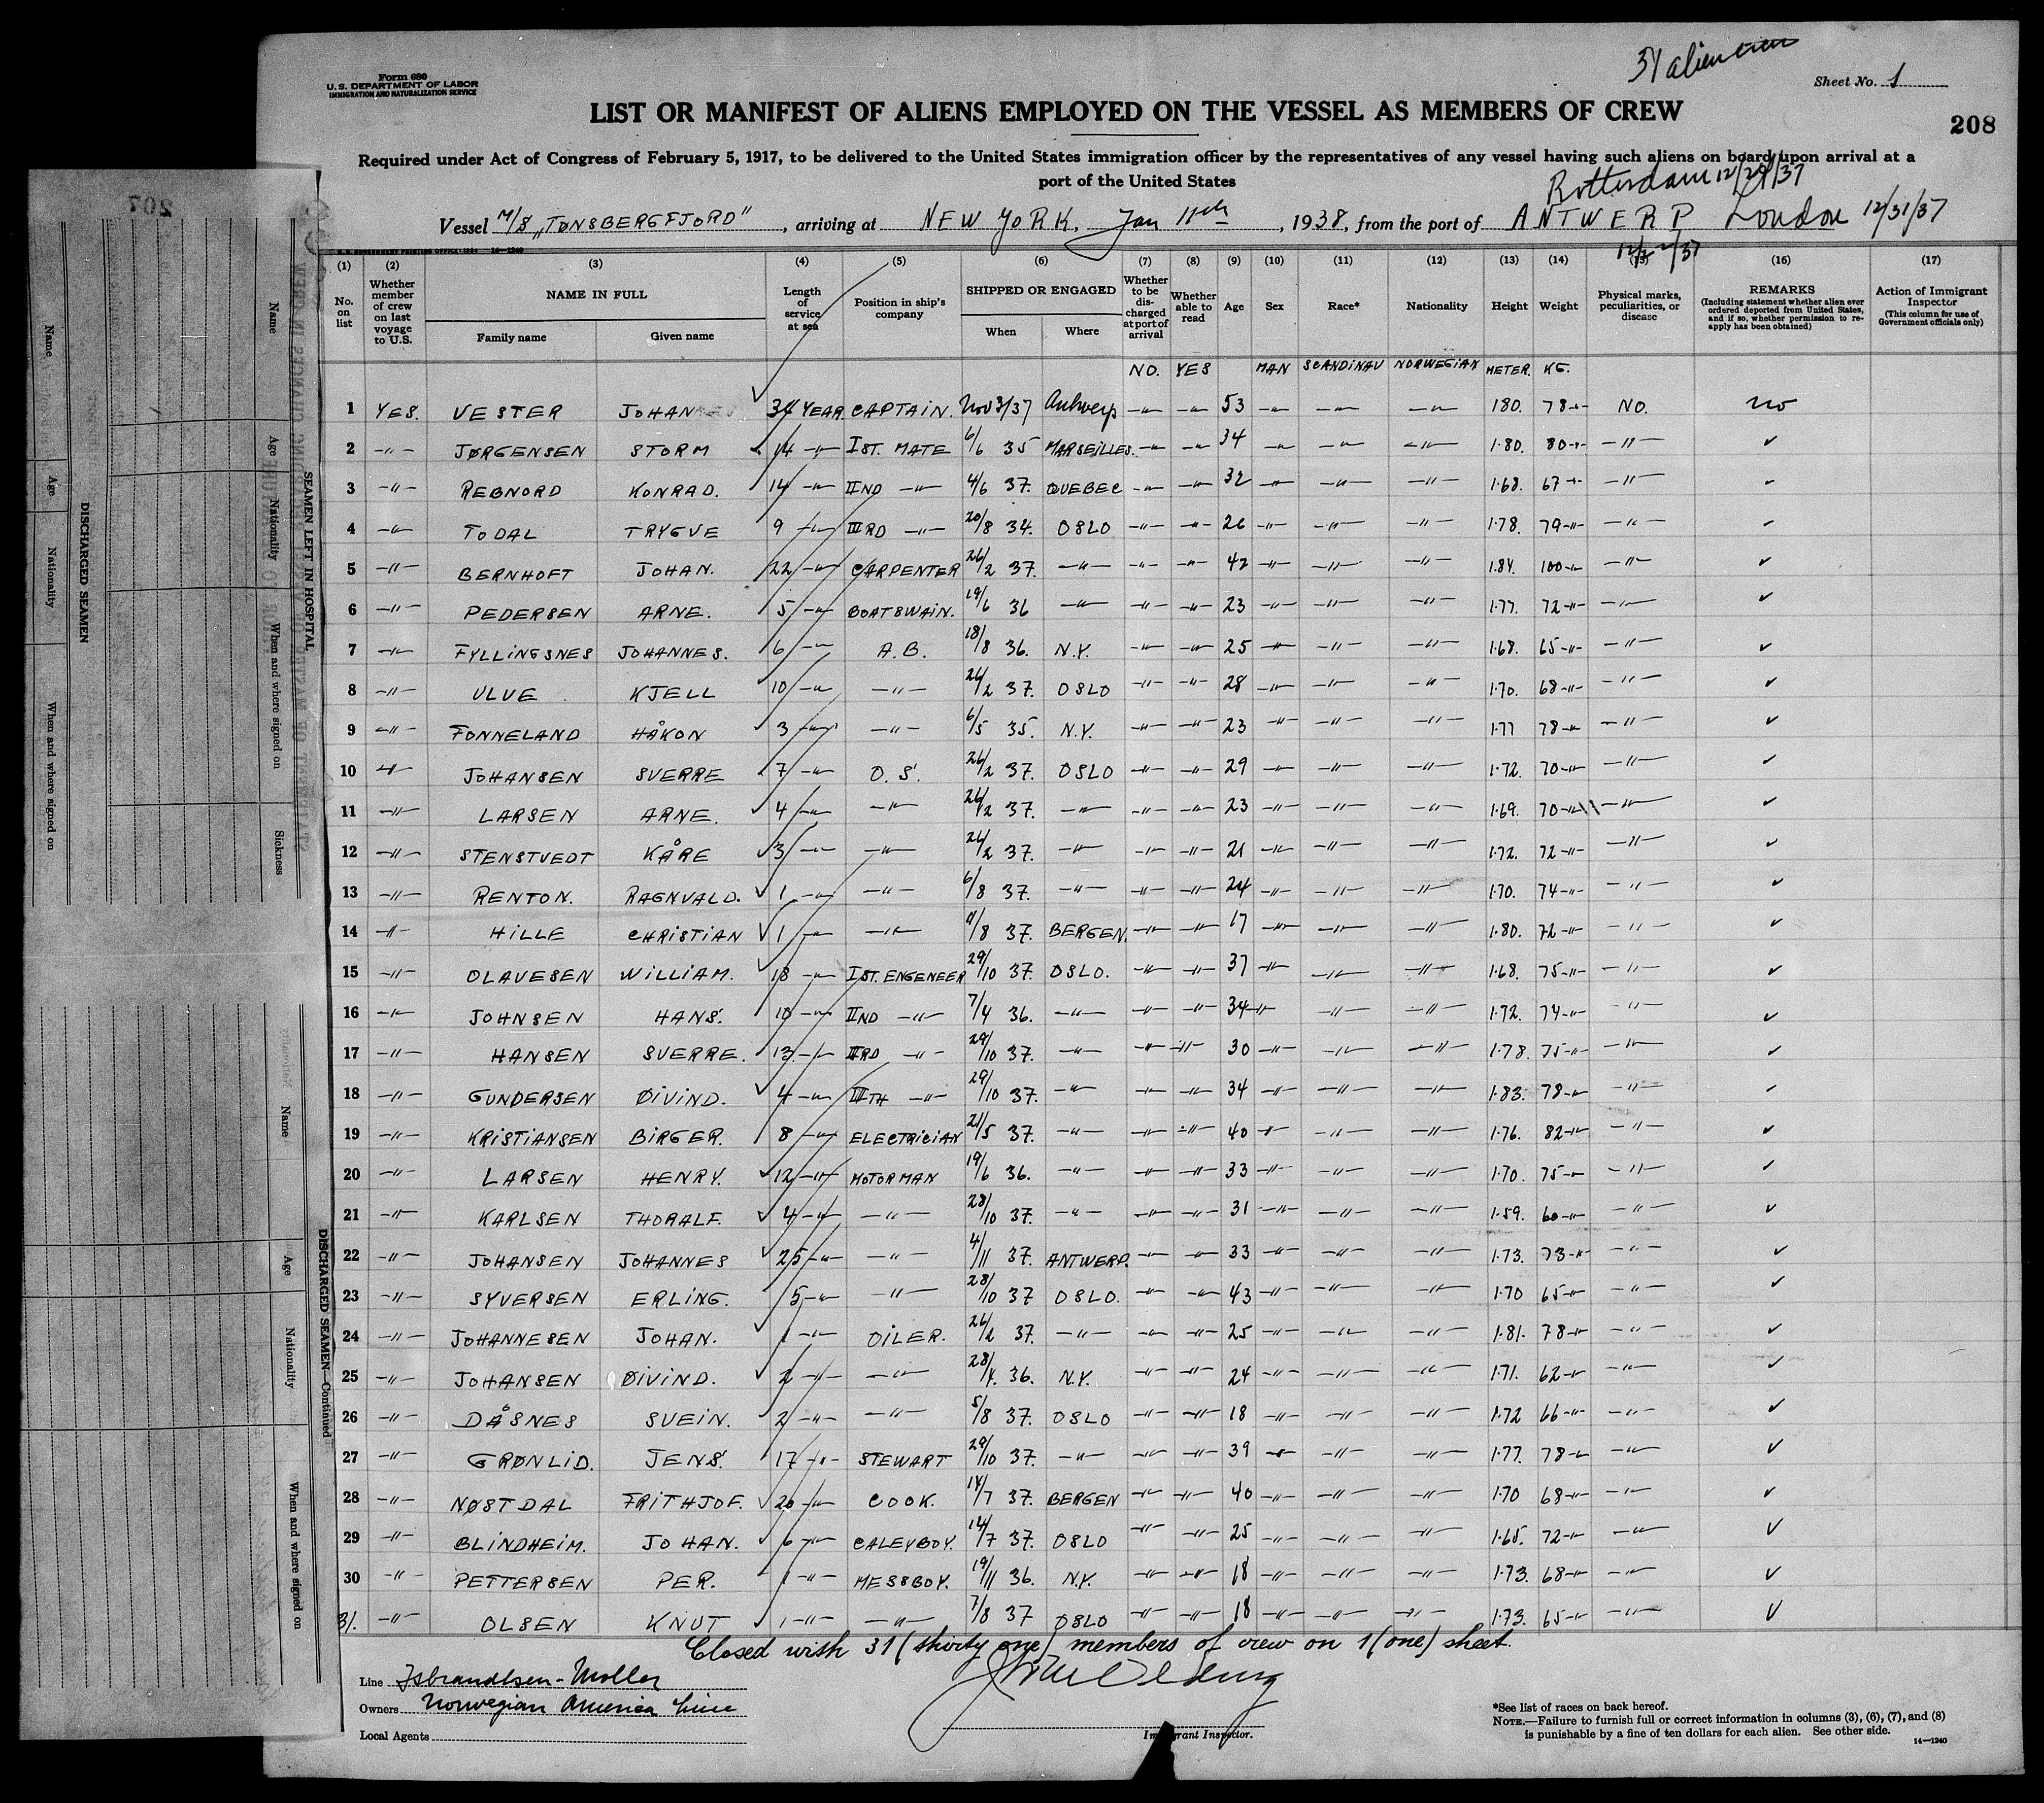 31 alien crew
Form 680
U. S. DEPARTMENT OF LABOR
IMMIGRATION AND NATURALIZATION SERVICE
Sheet No. 1
LIST OR MANIFEST OF ALIENS EMPLOYED ON THE VESSEL AS MEMBERS OF CREW
208
Required under Act of Congress of February 5, 1917, to be delivered to the United States immigration officer by the representatives of any vessel having such aliens on board upon arrival at a
port of the United States
Rotterdam 12/29/37
Vessel M/S „TØNSBERGFJORD", arriving at NEW YORK, Jan 11th, 1938, from the port of ANTWERP London 12/31/37
U. S. GOVERNMENT PRINTING OFFICE: 1934 14—1240
(1) (2) (3) (4) (5) (6) (7) (8) (9) (10) (11) (12) (13) (14) (15) (16) (17)
No. on list
Whether member of crew on last voyage to U.S.
NAME IN FULL
Family name
Given name
Length of service at sea
Position in ship's company
SHIPPED OR ENGAGED
When
Where
Whether to be discharged at port of arrival
Whether able to read
Age
Sex
Race*
Nationality
Height
Weight
Physical marks, peculiarities, or disease
REMARKS
(Including statement whether alien ever ordered deported from United States, and if so, whether permission to reapply has been obtained)
Action of Immigrant Inspector
(This column for use of Government officials only)
NO. YES MAN SCANDINAV NORWEGIAN METER. KG.
1 YES. VESTER JOHANNES 34 YEAR CAPTAIN. Nov 3/37 Antwerp —"— —"— 53 —"— —"— —"— 180. 78 —"— NO. No
2 —"— JØRGENSEN STORM 14 —"— IST. MATE 6/6 35 MARSEILLES. —"— —"— 34 —"— —"— —"— 1.80. 80 —"— —"— ✓
3 —"— REBNORD KONRAD. 14 —"— IIND —"— 4/6 37. QUEBEC —"— —"— 32 —"— —"— —"— 1.68. 67 —"— —"— ✓
4 —"— TODAL TRYGVE 9 —"— IIIRD —"— 20/8 34. OSLO —"— —"— 26 —"— —"— —"— 1.78. 79 —"— —"— ✓
5 —"— BERNHOFT JOHAN. 22 —"— CARPENTER 26/2 37. —"— —"— —"— 42 —"— —"— —"— 1.84. 100 —"— —"— ✓
6 —"— PEDERSEN ARNE. 5 —"— BOATSWAIN. 19/6 36 —"— —"— —"— 23 —"— —"— —"— 1.77. 72 —"— —"— ✓
7 —"— FYLLINGSNES JOHANNES. 6 —"— A.B. 18/8 36. N.Y. —"— —"— 25 —"— —"— —"— 1.68. 65 —"— —"— ✓
8 —"— ULVE KJELL 10 —"— —"— 26/2 37. OSLO —"— —"— 28 —"— —"— —"— 1.70. 68 —"— —"— ✓
9 —"— FONNELAND HÅKON 3 —"— —"— 6/5 35. N.Y. —"— —"— 23 —"— —"— —"— 1.77 78 —"— —"— ✓
10 —"— JOHANSEN SVERRE 7 —"— O.S. 26/2 37. OSLO —"— —"— 29 —"— —"— —"— 1.72. 70 —"— —"— ✓
11 —"— LARSEN ARNE. 4 —"— —"— 26/2 37. —"— —"— —"— 23 —"— —"— —"— 1.69. 70 —"— —"— ✓
12 —"— STENSTVEDT KÅRE 3 —"— —"— 26/2 37. —"— —"— —"— 21 —"— —"— —"— 1.72. 72 —"— —"— ✓
13 —"— RENTON. RAGNVALD. 1 —"— —"— 6/8 37. —"— —"— —"— 24 —"— —"— —"— 1.70. 74 —"— —"— ✓
14 —"— HILLE CHRISTIAN 1 —"— —"— 4/8 37. BERGEN. —"— —"— 17 —"— —"— —"— 1.80. 72 —"— —"— ✓
15 —"— OLAVESEN WILLIAM. 18 —"— IST. ENGENEER 29/10 37. OSLO. —"— —"— 37 —"— —"— —"— 1.68. 75 —"— —"— ✓
16 —"— JOHNSEN HANS. 10 —"— IIND —"— 7/4 36. —"— —"— —"— 34 —"— —"— —"— 1.72. 74 —"— —"— ✓
17 —"— HANSEN SVERRE. 13 —"— IIIRD —"— 29/10 37. —"— —"— —"— 30 —"— —"— —"— 1.78. 75 —"— —"— ✓
18 —"— GUNDERSEN ØIVIND. 4 —"— IIIITH —"— 29/10 37. —"— —"— —"— 34 —"— —"— —"— 1.83. 78 —"— —"— ✓
19 —"— KRISTIANSEN BIRGER. 8 —"— ELECTRICIAN 21/5 37. —"— —"— —"— 40 —"— —"— —"— 1.76. 82 —"— —"— ✓
20 —"— LARSEN HENRY. 12 —"— MOTORMAN 19/6 36. —"— —"— —"— 33 —"— —"— —"— 1.70. 75 —"— —"— ✓
21 —"— KARLSEN THORALF. 4 —"— —"— 28/10 37. —"— —"— —"— 31 —"— —"— —"— 1.59. 60 —"— —"— ✓
22 —"— JOHANSEN JOHANNES 25 —"— —"— 4/11 37. ANTWERP. —"— —"— 33 —"— —"— —"— 1.73. 73 —"— —"— ✓
23 —"— SYVERSEN ERLING. 5 —"— —"— 28/10 37 OSLO. —"— —"— 43 —"— —"— —"— 1.70 65 —"— —"— ✓
24 —"— JOHANNESEN JOHAN. 1 —"— OILER. 26/2 37. —"— —"— —"— 25 —"— —"— —"— 1.81. 78 —"— —"— ✓
25 —"— JOHANSEN ØIVIND. 2 —"— —"— 28/4. 36. N.Y. —"— —"— 24 —"— —"— —"— 1.71. 62 —"— —"— ✓
26 —"— DÅSNES SVEIN. 2 —"— —"— 5/8 37. OSLO —"— —"— 18 —"— —"— —"— 1.72 66 —"— —"— ✓
27 —"— GRØNLID. JENS. 17 —"— STEWART 29/10 37. —"— —"— —"— 39 —"— —"— —"— 1.77. 78 —"— —"— ✓
28 —"— NØSTDAL FRITHJOF. 20 —"— COOK. 14/7 37. BERGEN —"— —"— 40 —"— —"— —"— 1.70 68 —"— —"— ✓
29 —"— BLINDHEIM. JOHAN. 6 —"— CALEYBOY. 14/7 37. OSLO —"— —"— 25 —"— —"— —"— 1.65. 72 —"— —"— ✓
30 —"— PETTERSEN PER. 1 —"— MESSBOY. 19/11 36. N.Y. —"— —"— 18 —"— —"— —"— 1.73. 68 —"— —"— ✓
31. —"— OLSEN KNUT 1 —"— —"— 7/8 37 OSLO —"— —"— 18 —"— —"— —"— 1.73. 65 —"— —"— ✓
Closed with 31 (thirty one) members of crew on 1 (one) sheet.
Line Isbrandtsen-Moller
Owners Norwegian America Line
Local Agents
Immigrant Inspector.
*See list of races on back hereof.
NOTE.—Failure to furnish full or correct information in columns (3), (6), (7), and (8)
is punishable by a fine of ten dollars for each alien. See other side.
14—1240
207
SEAMEN LEFT IN HOSPITAL
Name
Age
Nationality
When and where signed on
Sickness
DISCHARGED SEAMEN
Name
Age
Nationality
When and where signed on
DISCHARGED SEAMEN—Continued
Name
Age
Nationality
When and where signed on